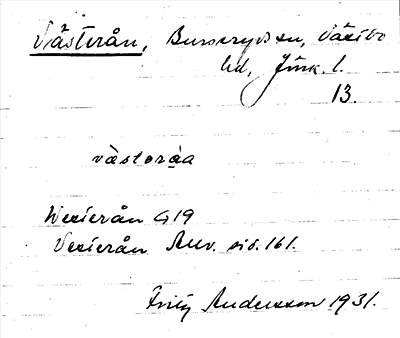 Västerån, Burseryds sn, Västbo
hd, Jönk. l.
13.
västəråa
Westerån G19
Vesterån Runv. sid. 161.
Fritz Andersson 1931.